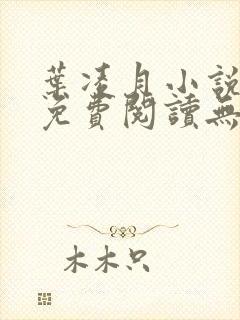 葉凌月小說
免費閱讀無
木木只